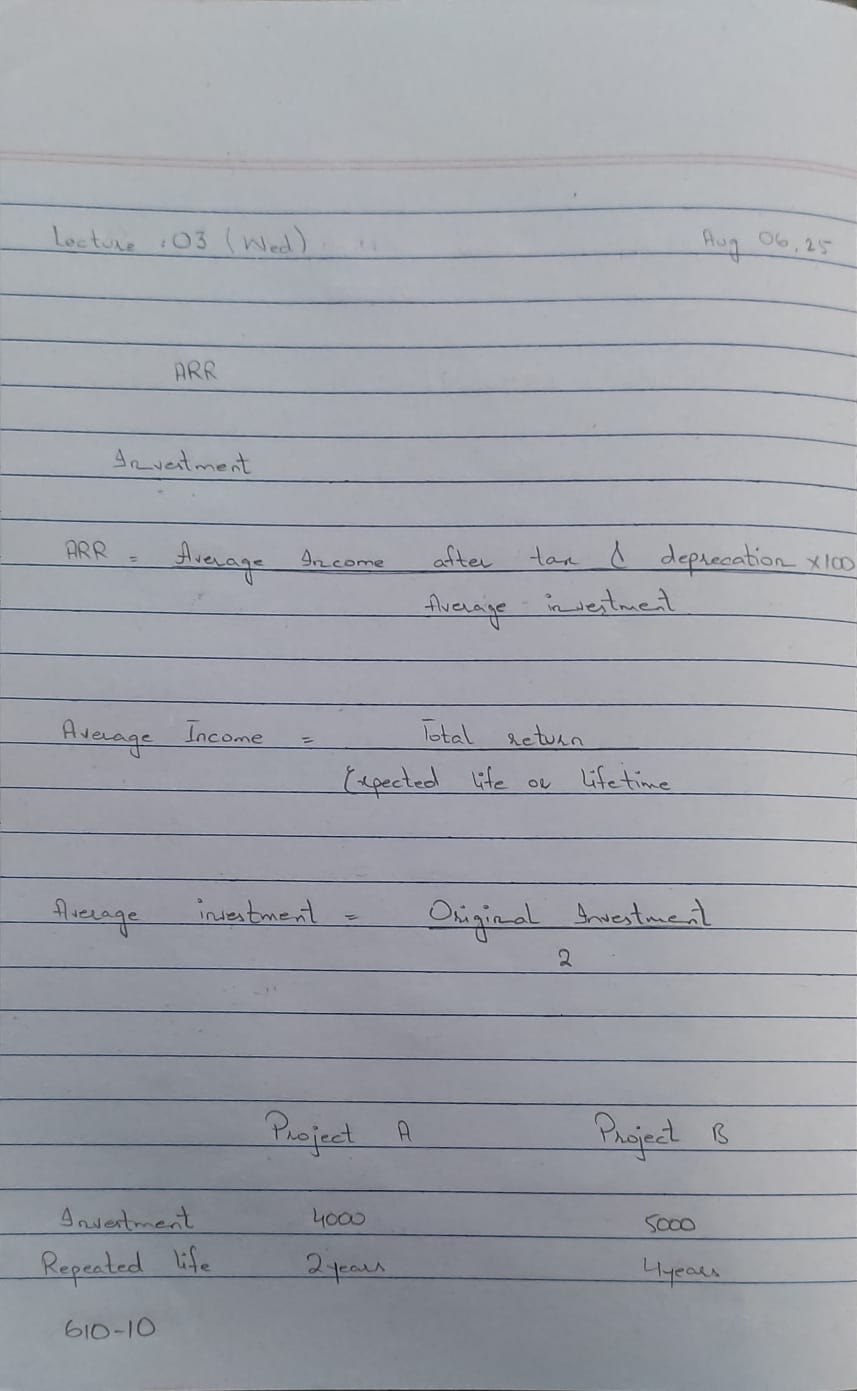 Lecture :03 (Wed) Aug 06, 25
ARR
Investment
ARR = Average Income after tax & deprecation ×100
Average investment
Average Income = Total return
Expected life or lifetime
Average investment = Original Investment
2
Project A Project B
Investment 4000 5000
Repeated life 2 years 4 years
610-10